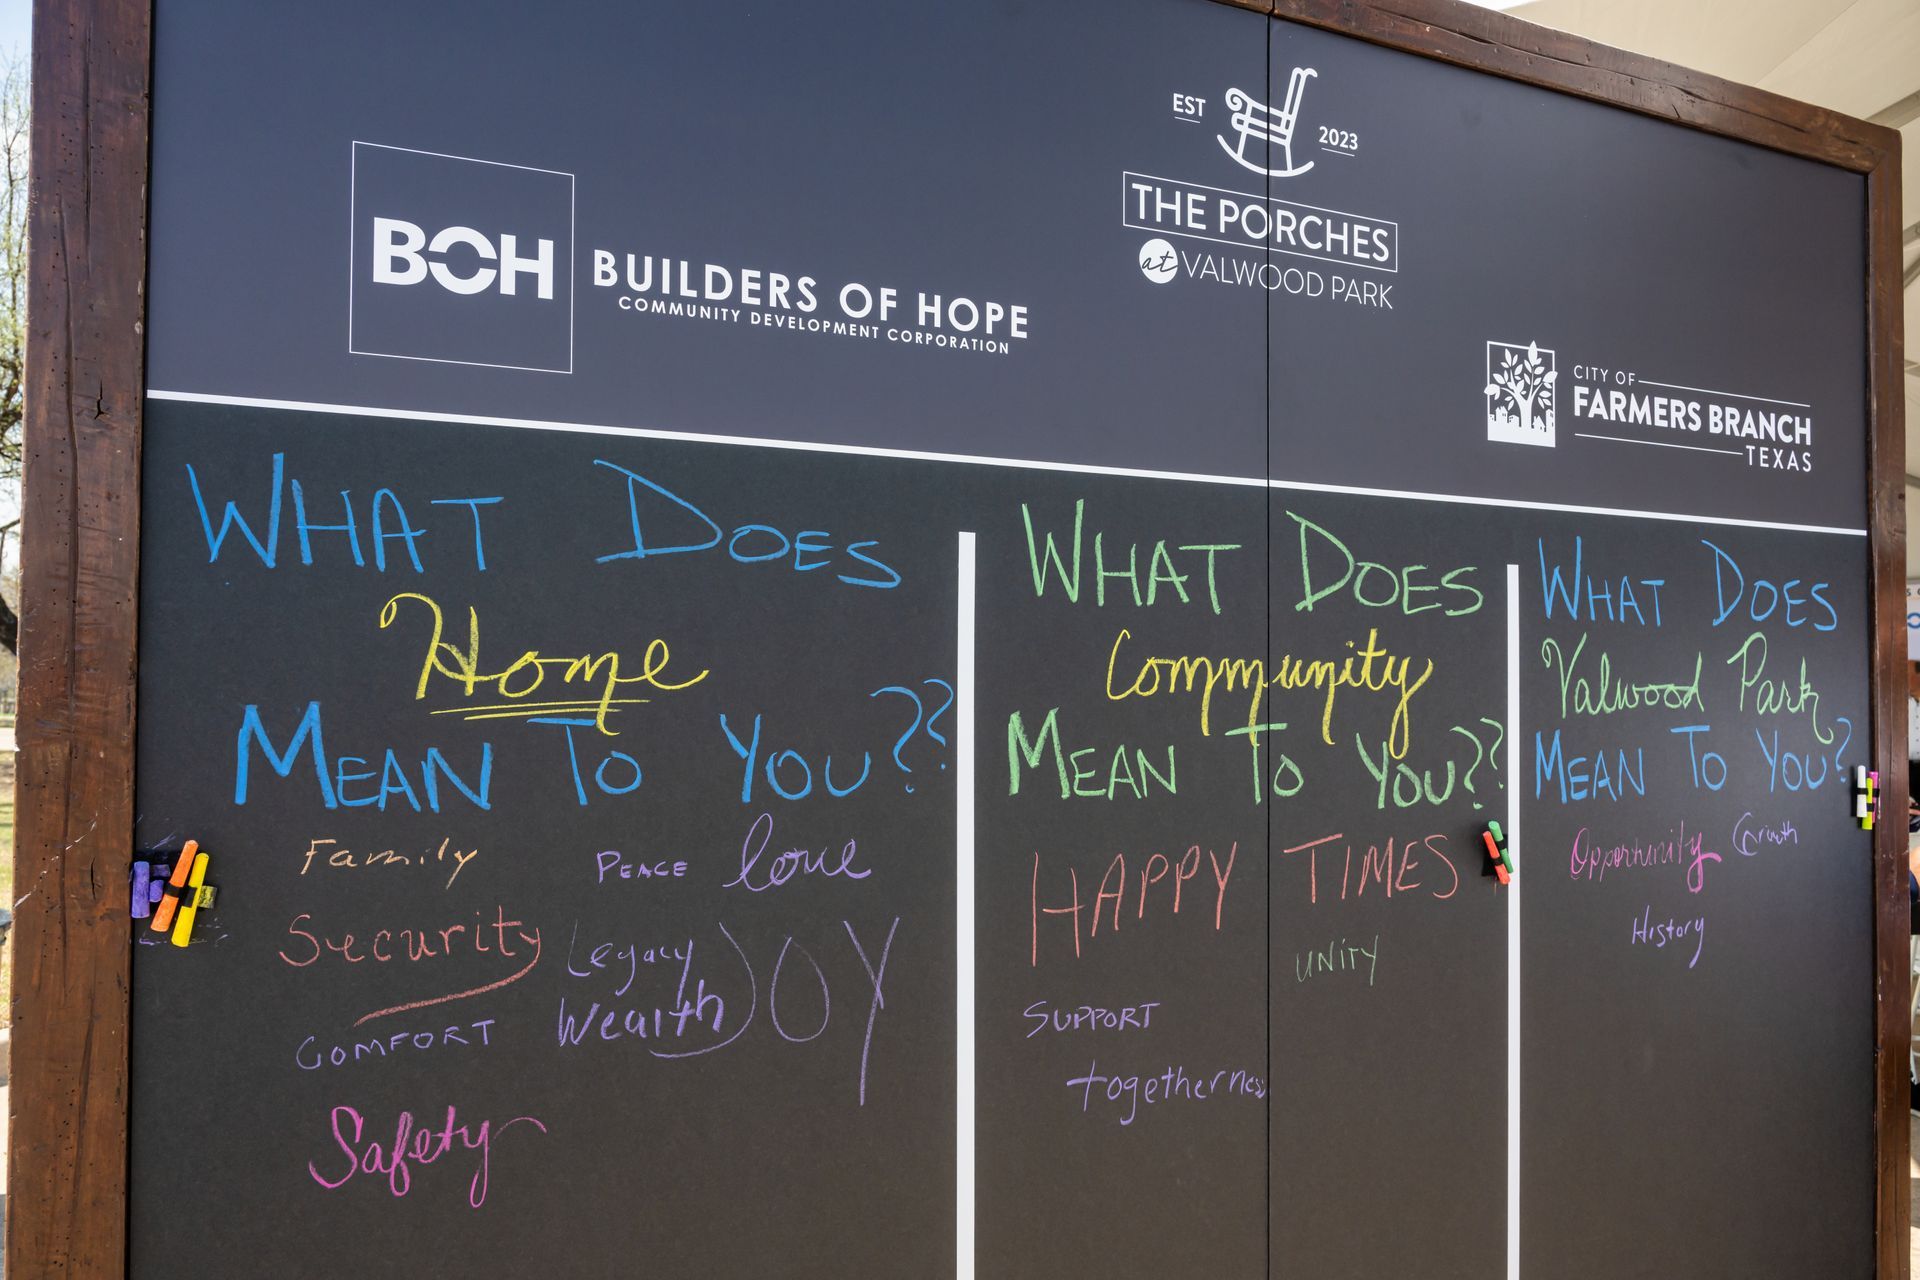 BOH
BUILDERS OF HOPE
COMMUNITY DEVELOPMENT CORPORATION
EST
2023
THE PORCHES
at VALWOOD PARK
CITY OF
FARMERS BRANCH
TEXAS
WHAT DOES
Home
MEAN TO YOU??
Family
PEACE
love
Security
Legacy
Wealth
JOY
COMFORT
Safety
WHAT DOES
Community
MEAN TO YOU??
HAPPY TIMES
UNITY
SUPPORT
togetherness
WHAT DOES
Valwood Park
MEAN TO YOU?
Opportunity
Growth
History